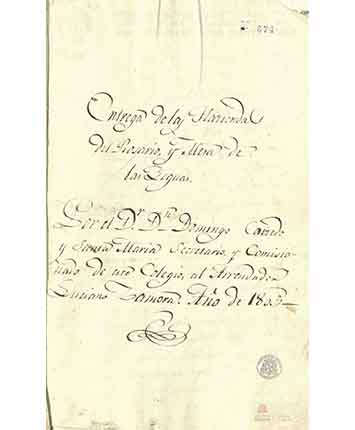 Nº 674
Entrega de las Haciendas
del Rosario, y Mesa de
las Yeguas.
Por el D.r D.n Domingo
y Santa Maria Secretario, y Comisio-
nado de este Colegio, al Arrendador
Luciano Zamora. Año de